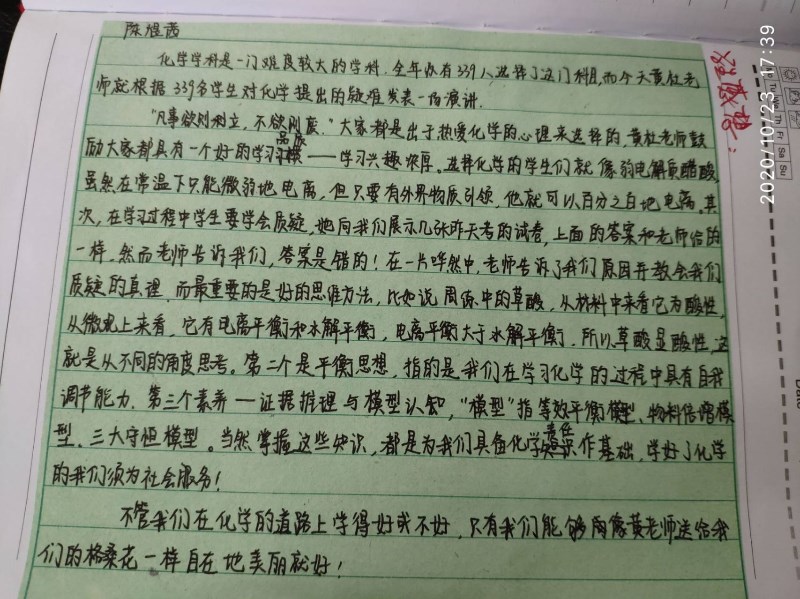 陈煜茜
化学学科是一门难度较大的学科，全年办有339人选择了这门科目，而今天黄杜老
师就根据339多学生对化学提出的疑难发表一场演讲.
"凡事欲则树立，不欲则废."大家都是出于热爱化学的心理来选择的，黄杜老师鼓
励大家都具有一个好的学习品质——学习兴趣浓厚。选择化学的学生们就像弱电解质醋酸，
虽然在常温下只能微弱地电离，但只要有外界物质引领，他就可以百分之百地电离。其
次，在学习过程中学生要学会质疑，她向我们展示几张昨天考的试卷，上面的答案和老师给的
一样，然而老师告诉我们，答案是错的！在一片哗然中，老师告诉了我们原因并教会我们
质疑的真理，而最重要的是好的思维方法，比如说周练中的草酸，从材料中来看它为酸性，
从微观上来看，它有电离平衡和水解平衡，电离平衡大于水解平衡，所以草酸显酸性，这
就是从不同的角度思考。第二个是平衡思想，指的是我们在学习化学的过程中具有自我
调节能力，第三个素养——证据推理与模型认知，"模型"指等效平衡模型、物料倍增模
型、三大守恒模型。当然掌握这些知识，都是为我们具备化学素养作基础，学好了化学
的我们须为社会服务！
不管我们在化学的道路上学得好或不好，只有我们能够像黄老师送给我
们的格桑花一样自在地美丽就好！
2020/10/23 17:39
Tu
We
Th
Fr
Sa
Su